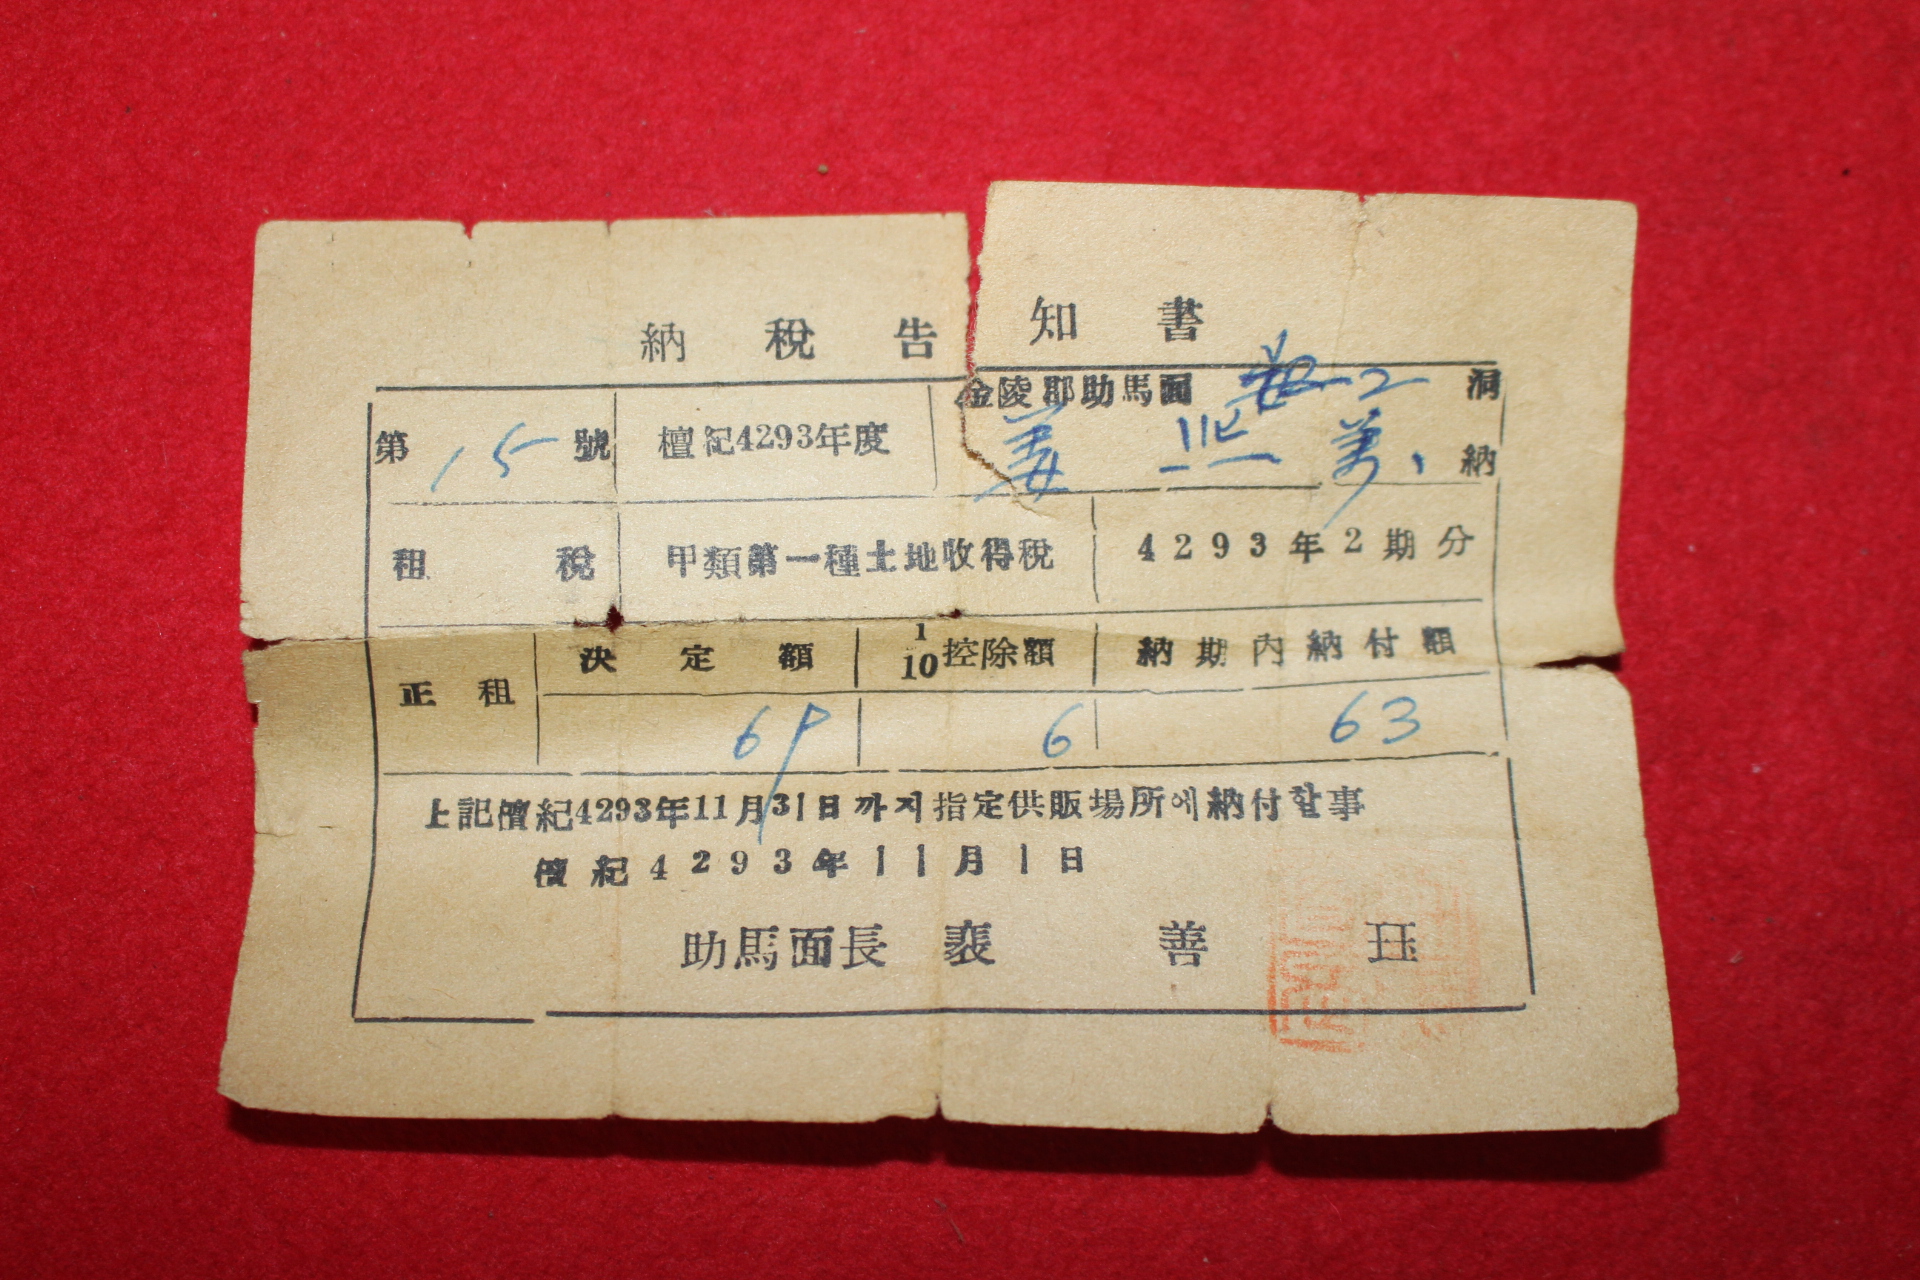 納稅告知書
第15號 檀紀4293年度 金陵郡助馬面 2洞
姜 熙 萬 納
租稅 甲類第一種土地收得稅 4293年2期分
正租 決定額 1/10控除額 納期內納付額
69 6 63
上記檀紀4293年11月31日까지指定供販場所에納付할事
檀紀4293年11月1日
助馬面長 裵善珏